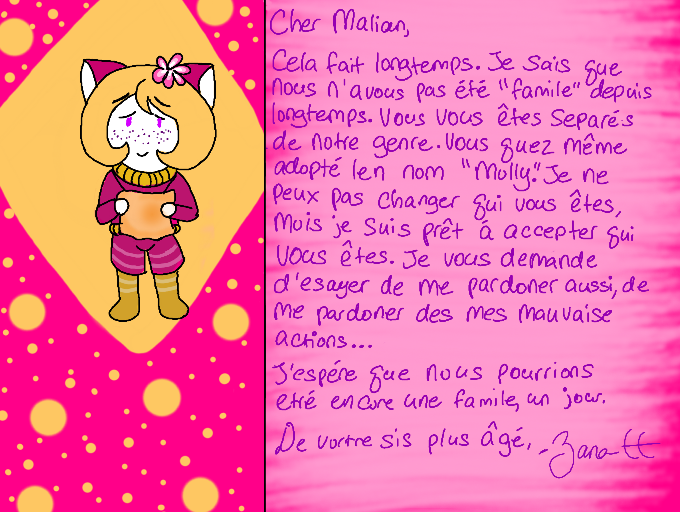 Cher Malian,
Cela fait longtemps. Je sais que
nous n'avous pas été "famile" depuis
longtemps. Vous vous êtes separés
de notre genre. Vous quez même
adopté len nom "Molly." Je ne
peux pas changer qui vous êtes,
mois je suis prêt á accepter qui
vous êtes. Je vous demande
d'esayer de me pardoner aussi, de
me pardoner des mes mauvaise
actions...
J'espére que nous pourrions
etré encore une famile, un jour.
De vortre sis plus âgé,